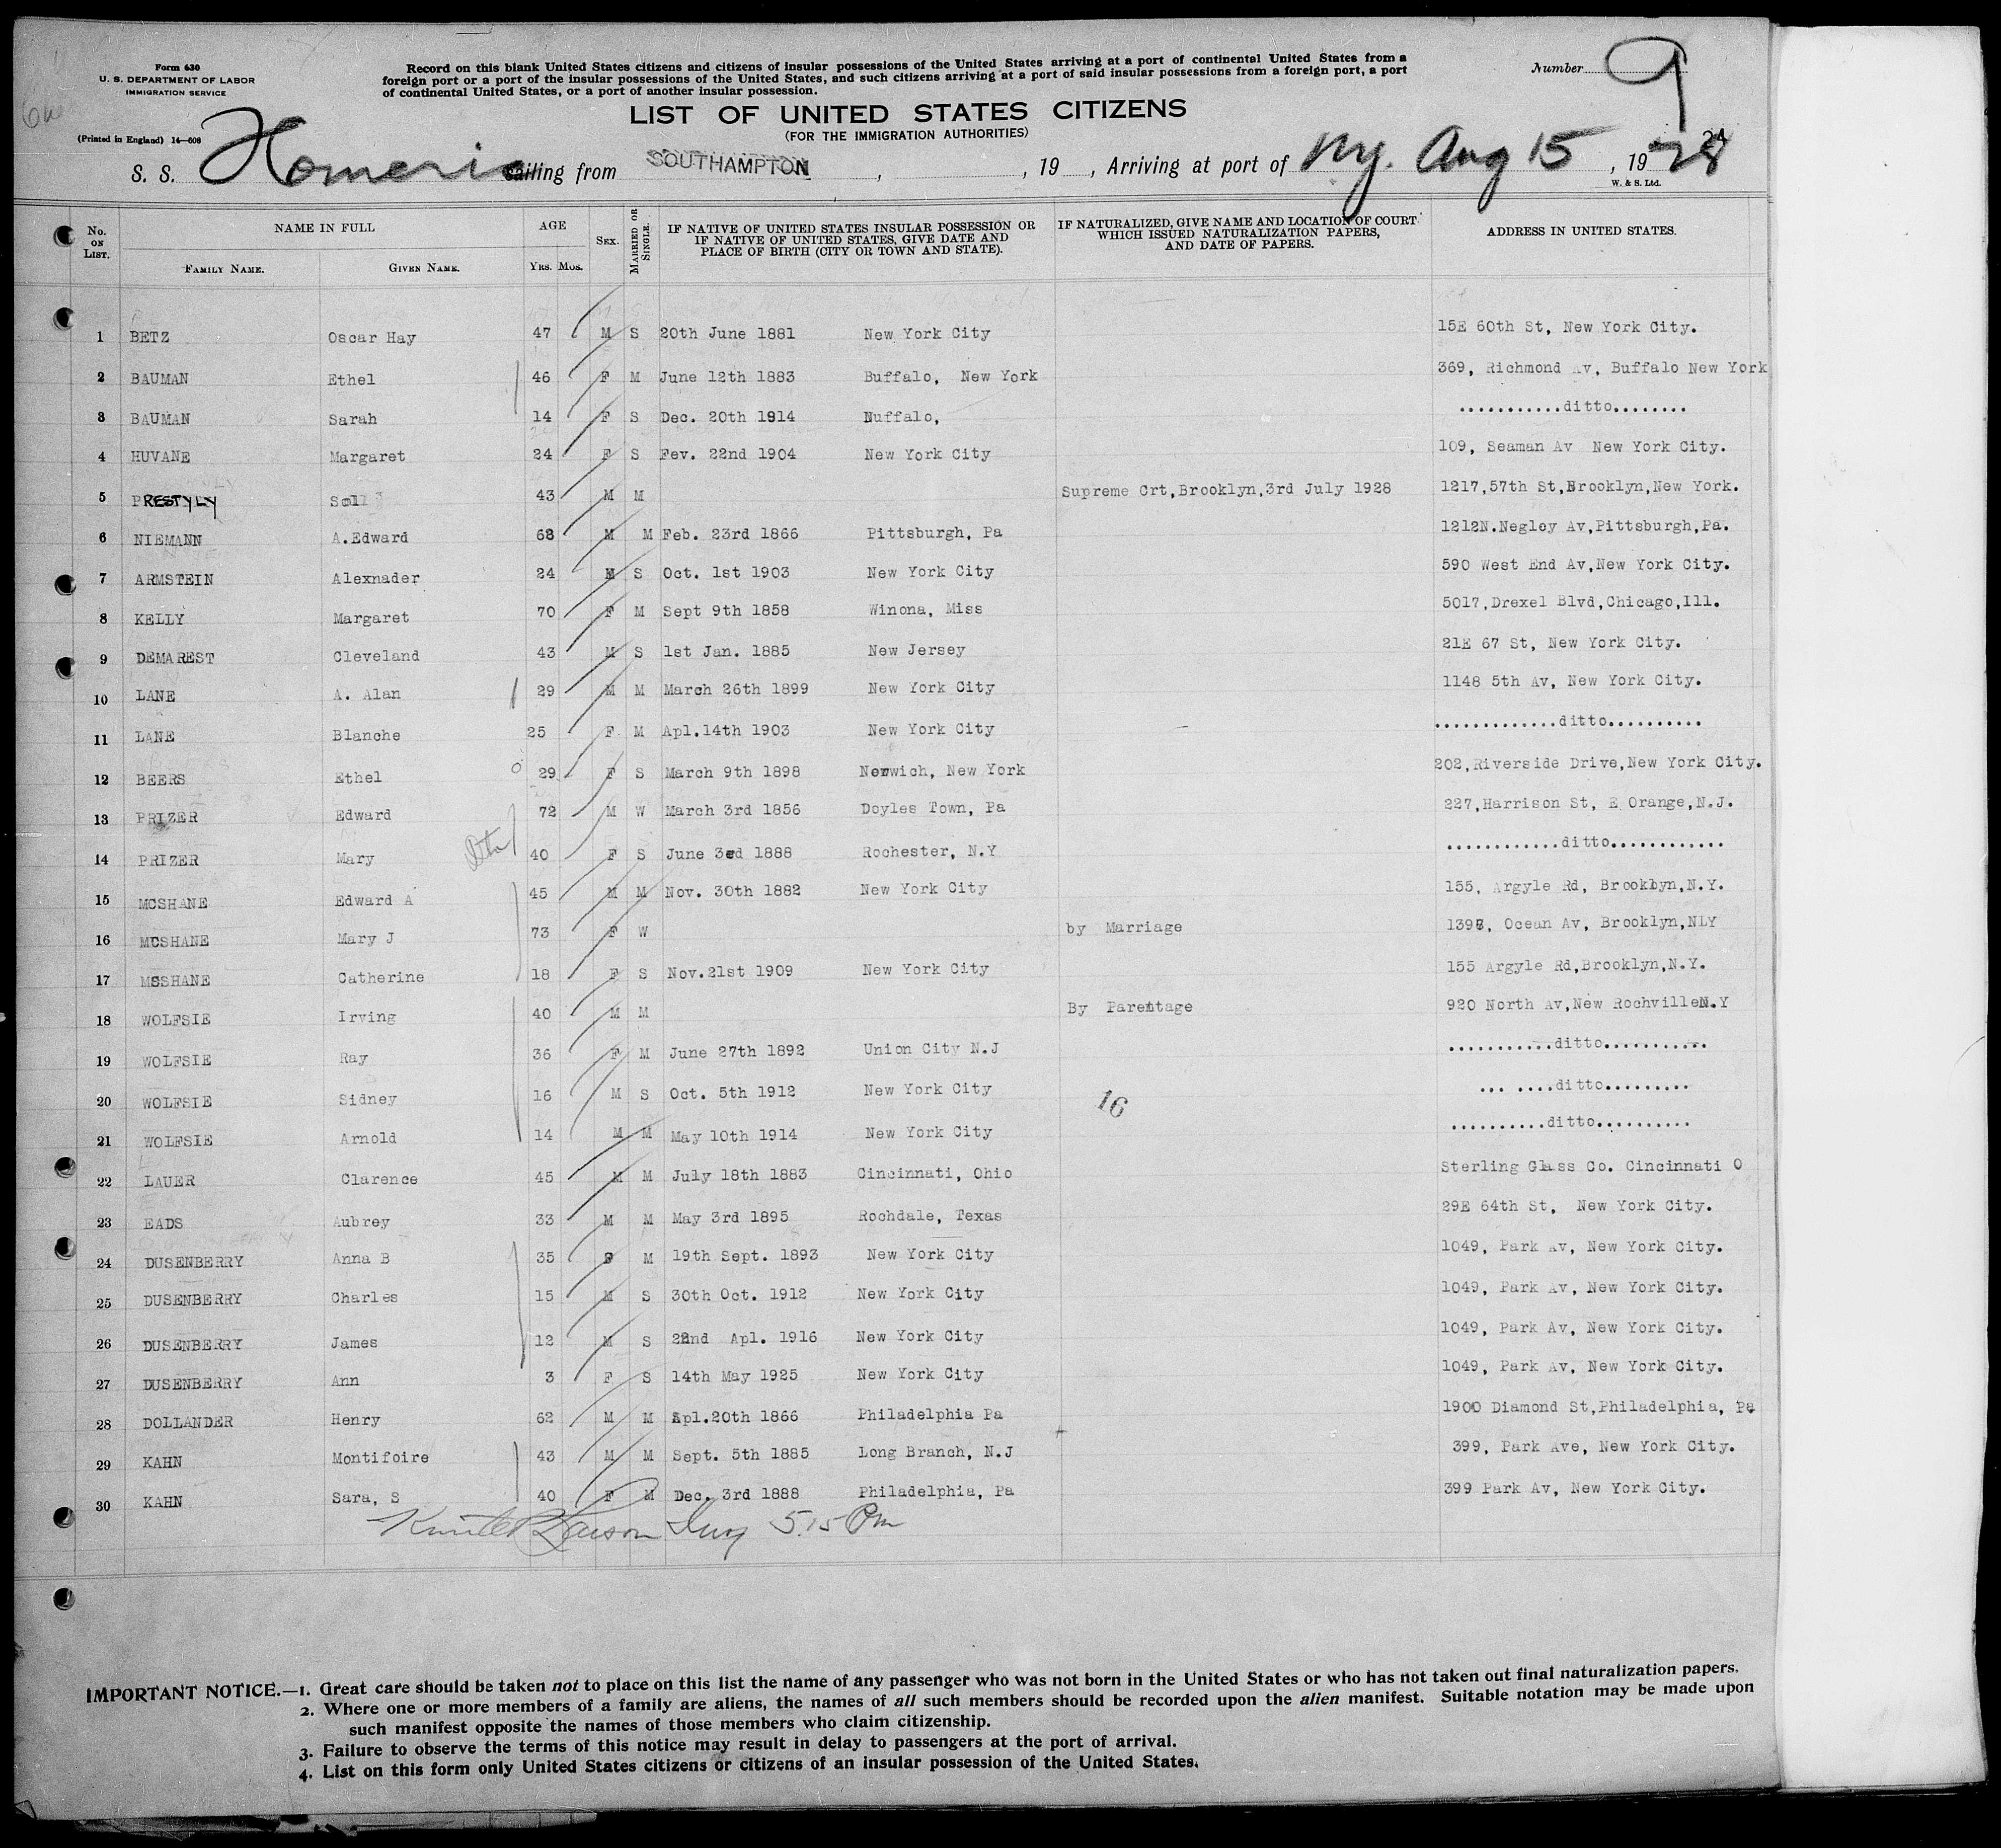 Form 630
U. S. DEPARTMENT OF LABOR
IMMIGRATION SERVICE
(Printed in England) 14—608
Record on this blank United States citizens and citizens of insular possessions of the United States arriving at a port of continental United States from a
foreign port or a port of the insular possessions of the United States, and such citizens arriving at a port of said insular possessions from a foreign port, a port
of continental United States, or a port of another insular possession.
Number 9
LIST OF UNITED STATES CITIZENS
(FOR THE IMMIGRATION AUTHORITIES)
S. S. Homeric sailing from SOUTHAMPTON , , 19 , Arriving at port of Ny. Aug 15 , 1928
W. & S. Ltd.
No. ON LIST. NAME IN FULL AGE SEX. MARRIED OR SINGLE. IF NATIVE OF UNITED STATES INSULAR POSSESSION OR IF NATIVE OF UNITED STATES, GIVE DATE AND PLACE OF BIRTH (CITY OR TOWN AND STATE). IF NATURALIZED, GIVE NAME AND LOCATION OF COURT WHICH ISSUED NATURALIZATION PAPERS, AND DATE OF PAPERS. ADDRESS IN UNITED STATES.
FAMILY NAME. GIVEN NAME. YRS. MOS.
1 BETZ Oscar Hay 47 M S 20th June 1881 New York City 15E 60th St, New York City.
2 BAUMAN Ethel 46 F M June 12th 1883 Buffalo, New York 369, Richmond Av, Buffalo New York
3 BAUMAN Sarah 14 F S Dec. 20th 1914 Nuffalo, ............ditto........
4 HUVANE Margaret 24 F S Fev. 22nd 1904 New York City 109, Seaman Av New York City.
5 PRESTYLY 43 M M Supreme Crt,Brooklyn,3rd July 1928 1217,57th St,Brooklyn,New York.
6 NIEMANN A.Edward 62 M M Feb. 23rd 1866 Pittsburgh, Pa 1212N.Negley Av,Pittsburgh,Pa.
7 ARMSTEIN Alexnader 24 M S Oct. 1st 1903 New York City 590 West End Av,New York City.
8 KELLY Margaret 70 F M Sept 9th 1858 Winona, Miss 5017,Drexel Blvd,Chicago,Ill.
9 DEMAREST Cleveland 43 M S 1st Jan. 1885 New Jersey 21E 67 St, New York City.
10 LANE A. Alan 29 M M March 26th 1899 New York City 1148 5th Av, New York City.
11 LANE Blanche 25 F M Apl.14th 1903 New York City .............ditto..........
12 BEERS Ethel 29 F S March 9th 1898 Norwich, New York 202,Riverside Drive,New York City.
13 PRIZER Edward 72 M W March 3rd 1856 Doyles Town, Pa 227,Harrison St, E Orange,N.J.
14 PRIZER Mary 40 F S June 3rd 1888 Rochester, N.Y ............ditto............
15 MCSHANE Edward A 45 M M Nov. 30th 1882 New York City 155, Argyle Rd, Brooklyn,N.Y.
16 MCSHANE Mary J 73 F W by Marriage 1398, Ocean Av, Brooklyn,NLY
17 MSSHANE Catherine 18 F S Nov.21st 1909 New York City 155 Argyle Rd,Brooklyn,N.Y.
18 WOLFSIE Irving 40 M M By Parentage 920 North Av,New RochvilleN.Y
19 WOLFSIE Ray 36 F M June 27th 1892 Union City N.J ...........ditto...........
20 WOLFSIE Sidney 16 M S Oct. 5th 1912 New York City 16 ... ....ditto.........
21 WOLFSIE Arnold 14 M M May 10th 1914 New York City ..........ditto..........
22 LAUER Clarence 45 M M July 18th 1883 Cincinnati, Ohio Sterling Glass Co. Cincinnati O
23 EADS Aubrey 33 M M May 3rd 1895 Rochdale, Texas 29E 64th St, New York City.
24 DUSENBERRY Anna B 35 F M 19th Sept. 1893 New York City 1049, Park Av, New York City.
25 DUSENBERRY Charles 15 M S 30th Oct. 1912 New York City 1049, Park Av, New York City.
26 DUSENBERRY James 12 M S 22nd Apl. 1916 New York City 1049, Park Av, New York City.
27 DUSENBERRY Ann 3 F S 14th May 1925 New York City 1049, Park Av, New York City.
28 DOLLANDER Henry 62 M M Apl.20th 1866 Philadelphia Pa 1900 Diamond St,Philadelphia, Pa
29 KAHN Montifoire 43 M M Sept. 5th 1885 Long Branch, N.J 399, Park Ave, New York City.
30 KAHN Sara, S 40 F M Dec. 3rd 1888 Philadelphia, Pa 399 Park Av, New York City.
Larson 5.15 Pm
IMPORTANT NOTICE.—1. Great care should be taken not to place on this list the name of any passenger who was not born in the United States or who has not taken out final naturalization papers.
2. Where one or more members of a family are aliens, the names of all such members should be recorded upon the alien manifest. Suitable notation may be made upon
such manifest opposite the names of those members who claim citizenship.
3. Failure to observe the terms of this notice may result in delay to passengers at the port of arrival.
4. List on this form only United States citizens or citizens of an insular possession of the United States.